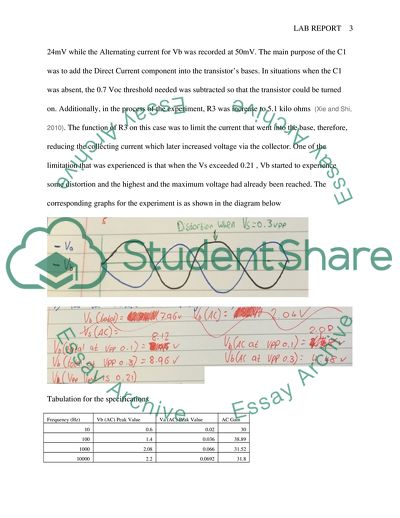 LAB REPORT 3
24mV while the Alternating current for Vb was recorded at 50mV. The main purpose of the C1
was to add the Direct Current component into the transistor's bases. In situations when the C1
was absent, the 0.7 Voc threshold needed was subtracted so that the transistor could be turned
on. Additionally, in the process of the experiment, R3 was increase to 5.1 kilo ohms (Xie and Shi,
2010). The function of R3 on this case was to limit the current that went into the base, therefore,
reducing the collecting current which later increased voltage via the collector. One of the
limitation that was experienced is that when the Vs exceeded 0.21 , Vb started to experience
some distortion and the highest and the maximum voltage had already been reached. The
corresponding graphs for the experiment is as shown in the diagram below
Distortion when Vs=0.3vpp
- Va
- Vb
StudentShare
Essay Archive
7.96v (AC) = 2.04V
-Vs (AC) =
8.12
at Vpp 0.1) = V (AC at vpp 0.1) =
VPP 0.3) = 8.96 V Vb(AC at VPP 0.3) =
Tabulation for the specifications
Frequency (Hz) Vb (AC) Peak Value Va (AC) Peak Value AC Gain
10 0.6 0.02 30
100 1.4 0.036 38.89
1000 2.08 0.066 31.52
10000 2.2 0.0692 31.8